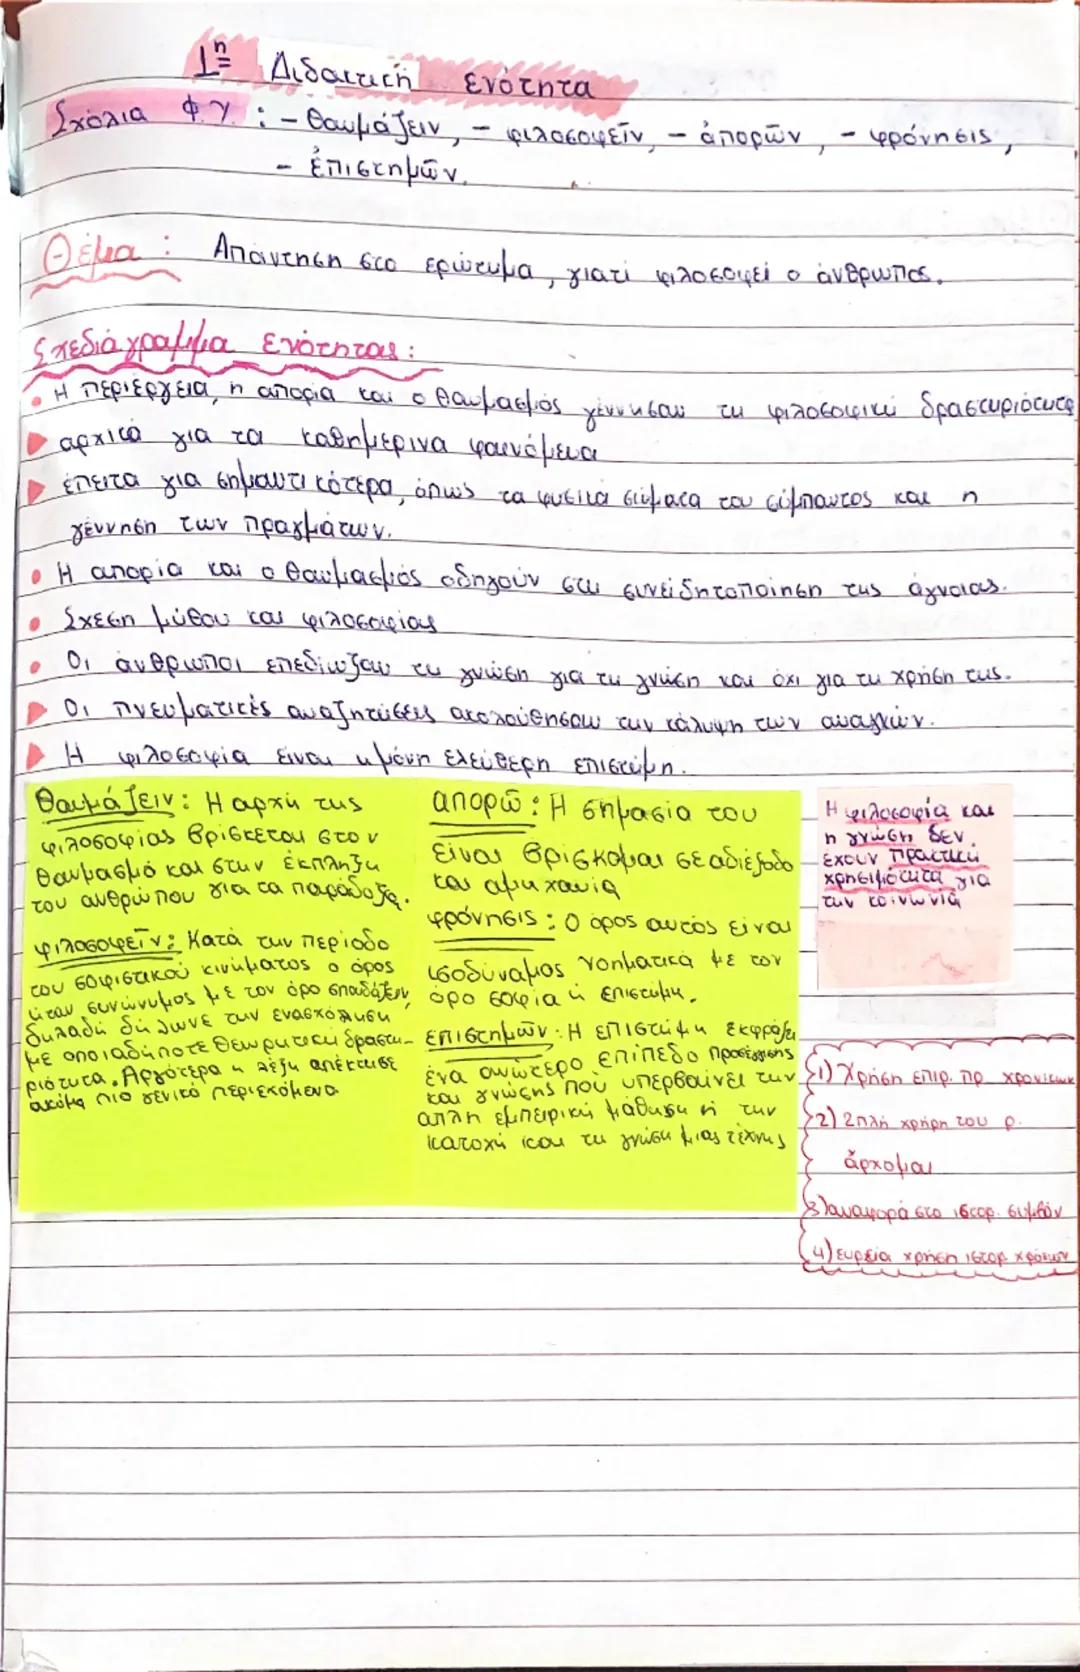 1η Διδακτική ενότητα
Σχόλια Φ.Υ : - θαυμάζειν, - φιλοσοφεῖν, - ἀπορῶν, - φρόνησις,
- ἐπιστημῶν.
Θέμα : Απάντηση στο ερώτημα, γιατί φιλοσοφεί ο άνθρωπος.
Σχεδιάγραμμα Ενότητας :
• Η περιέργεια, η απορία και ο θαυμασμός γέννησαν τη φιλοσοφική δραστηριότητα
αρχικά για τα καθημερινα φαινόμενα
έπειτα για σημαντικότερα, όπως τα φυσικά σώματα του σύμπαντος και η
γέννηση των πραγμάτων.
• Η απορία και ο θαυμασμός οδηγούν στη συνείδητοποίηση της άγνοιας.
• Σχέση μύθου και φιλοσοφίας
• Οι άνθρωποι επεδίωξαν τη γνώση για τη γνώση και όχι για τη χρήση της.
Οι πνευματικές αναζητήσεις ακολούθησαν την κάλυψη των αναγκών.
Η φιλοσοφία είναι η μόνη ελεύθερη επιστήμη.
θαυμάζειν: Η αρχή της
φιλοσοφίας βρίσκεται στον
θαυμασμό και στην έκπληξη
του ανθρώπου για τα παράδοξα.
φιλοσοφεῖν: Κατά την περίοδο
του σοφιστικού κινήματος ο όρος
ήταν συνώνυμος με τον όρο σπουδάζειν,
δηλαδή δήλωνε την ενασχόληση
με οποιαδήποτε θεωρητική δραστη-
ριότητα. Αργότερα η λέξη απέκτησε
ακόμα πιο γενικό περιεχόμενο
απορῶ : Η σημασία του
είναι βρίσκομαι σε αδιέξοδο
και αμηχανία
φρόνησις : Ο όρος αυτός είναι
ισοδύναμος νοηματικά με τον
όρο σοφία ή επιστήμη.
Επιστημῶν: Η επιστήμη εκφράζει
ένα ανώτερο επίπεδο προσέγγισης
και γνώσης που υπερβαίνει την
απλή εμπειρική μάθηση ή την
κατοχή και τη γνώση μιας τέχνης
Η φιλοσοφία και
η γνώση δεν
έχουν πρακτική
χρησιμότητα για
την κοινωνία
1) Χρήση επιρ. πρ. χρονικών
2) 2πλή χρήρη του ρ.
ἄρχομαι
3) αναφορά στο ιστορ. συμβάν
4) ευρεία χρήση ιστορ χρόνων